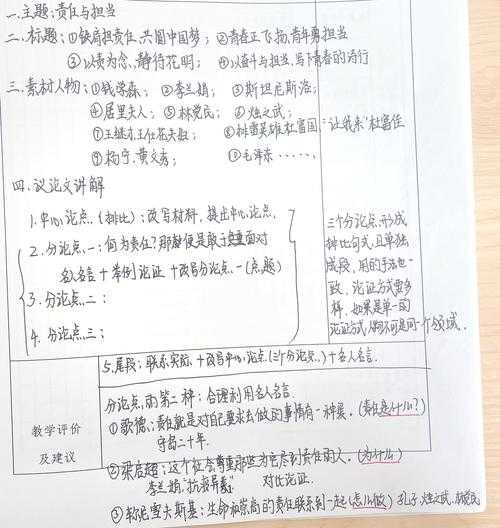 一.主题:责任与担当
二.标题:①铁肩担责任,共圆中国梦; ②青春正飞扬,青年勇担当
③以责为念,静待花明; ④以奋斗与担当,写下青春的诗行
三.素材人物:①钱学森; ②李兰娟; ③斯坦尼斯洛;
④居里夫人; ⑤林俊民; ⑥烛之武;
⑦王继才王仕花夫妇; ⑧排雷英雄杜富国"让我来"杜富国
⑨杨宁.黄文秀; ⑩毛泽东……
四.议论文讲解
1.中心论点(排比):改写材料,提出中心论点.
2.分论点一:何为责任?那就便是敢于直面对
名人名言+举例论证+改写分论点一(点题)
3.分论点二:
4.分论点三:
三个分论点,形成
排比句式,且单独
成段,用的手法也一
致,论证方式要多
样,如果是单一的
论证方式,人物不可是同一个领域.
5.尾段:联系实际+改写中心论点(三个分论点)+名人名言.
教学评价
及建议
分论点的第二种:合理利用名人名言
①歌德:责任就是对自己要求去做的事情有一种爱.(责任是什么?)
守岛二十年.
②梁启超:这个社会尊重那些为它尽到责任的人.(为什么)
李兰娟"抗疫英雄" 对比论证.
③:生命和崇高的责任联系到一起(怎么做)孔子.烛之武.